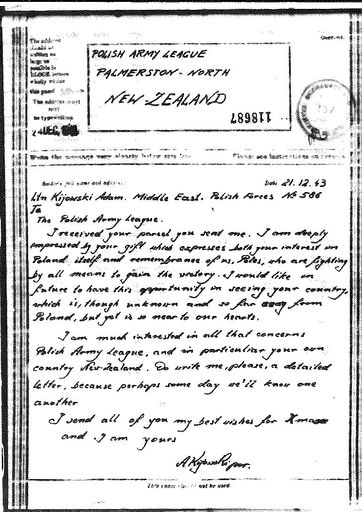 The address
written as
large as
possible in
BLOCK letters
wholly within
this panel
The address must
be typewritten
POLISH ARMY LEAGUE
PALMERSTON-NORTH
NEW-ZEALAND
118687
24 DEC
Write the message very clearly below this line
Please see instructions on reverse
Sender's full name and address
Date 21.12.43
Ltn Kijowski Adam. Middle East. Polish Forces No 586
To
The Polish Army League.
I received your parsel you sent me. I am deeply
impressed by your gift which expresses both your interest in
Poland itself and remembrance of us, Poles, who are fighting
by all means to gain the victory. I would like in
future to have this opportunity in seeing your country,
which is, though unknown and so far away from
Poland, but yet is so near to our hearts.
I am much interested in all that concerns
Polish Army League, and in particular your own
country New-Zealand. Do write me, please, a detailed
letter, because perhaps some day we'll know one
another
I send all of you my best wishes for Xmas
and I am yours
AKijowski
This space should not be used